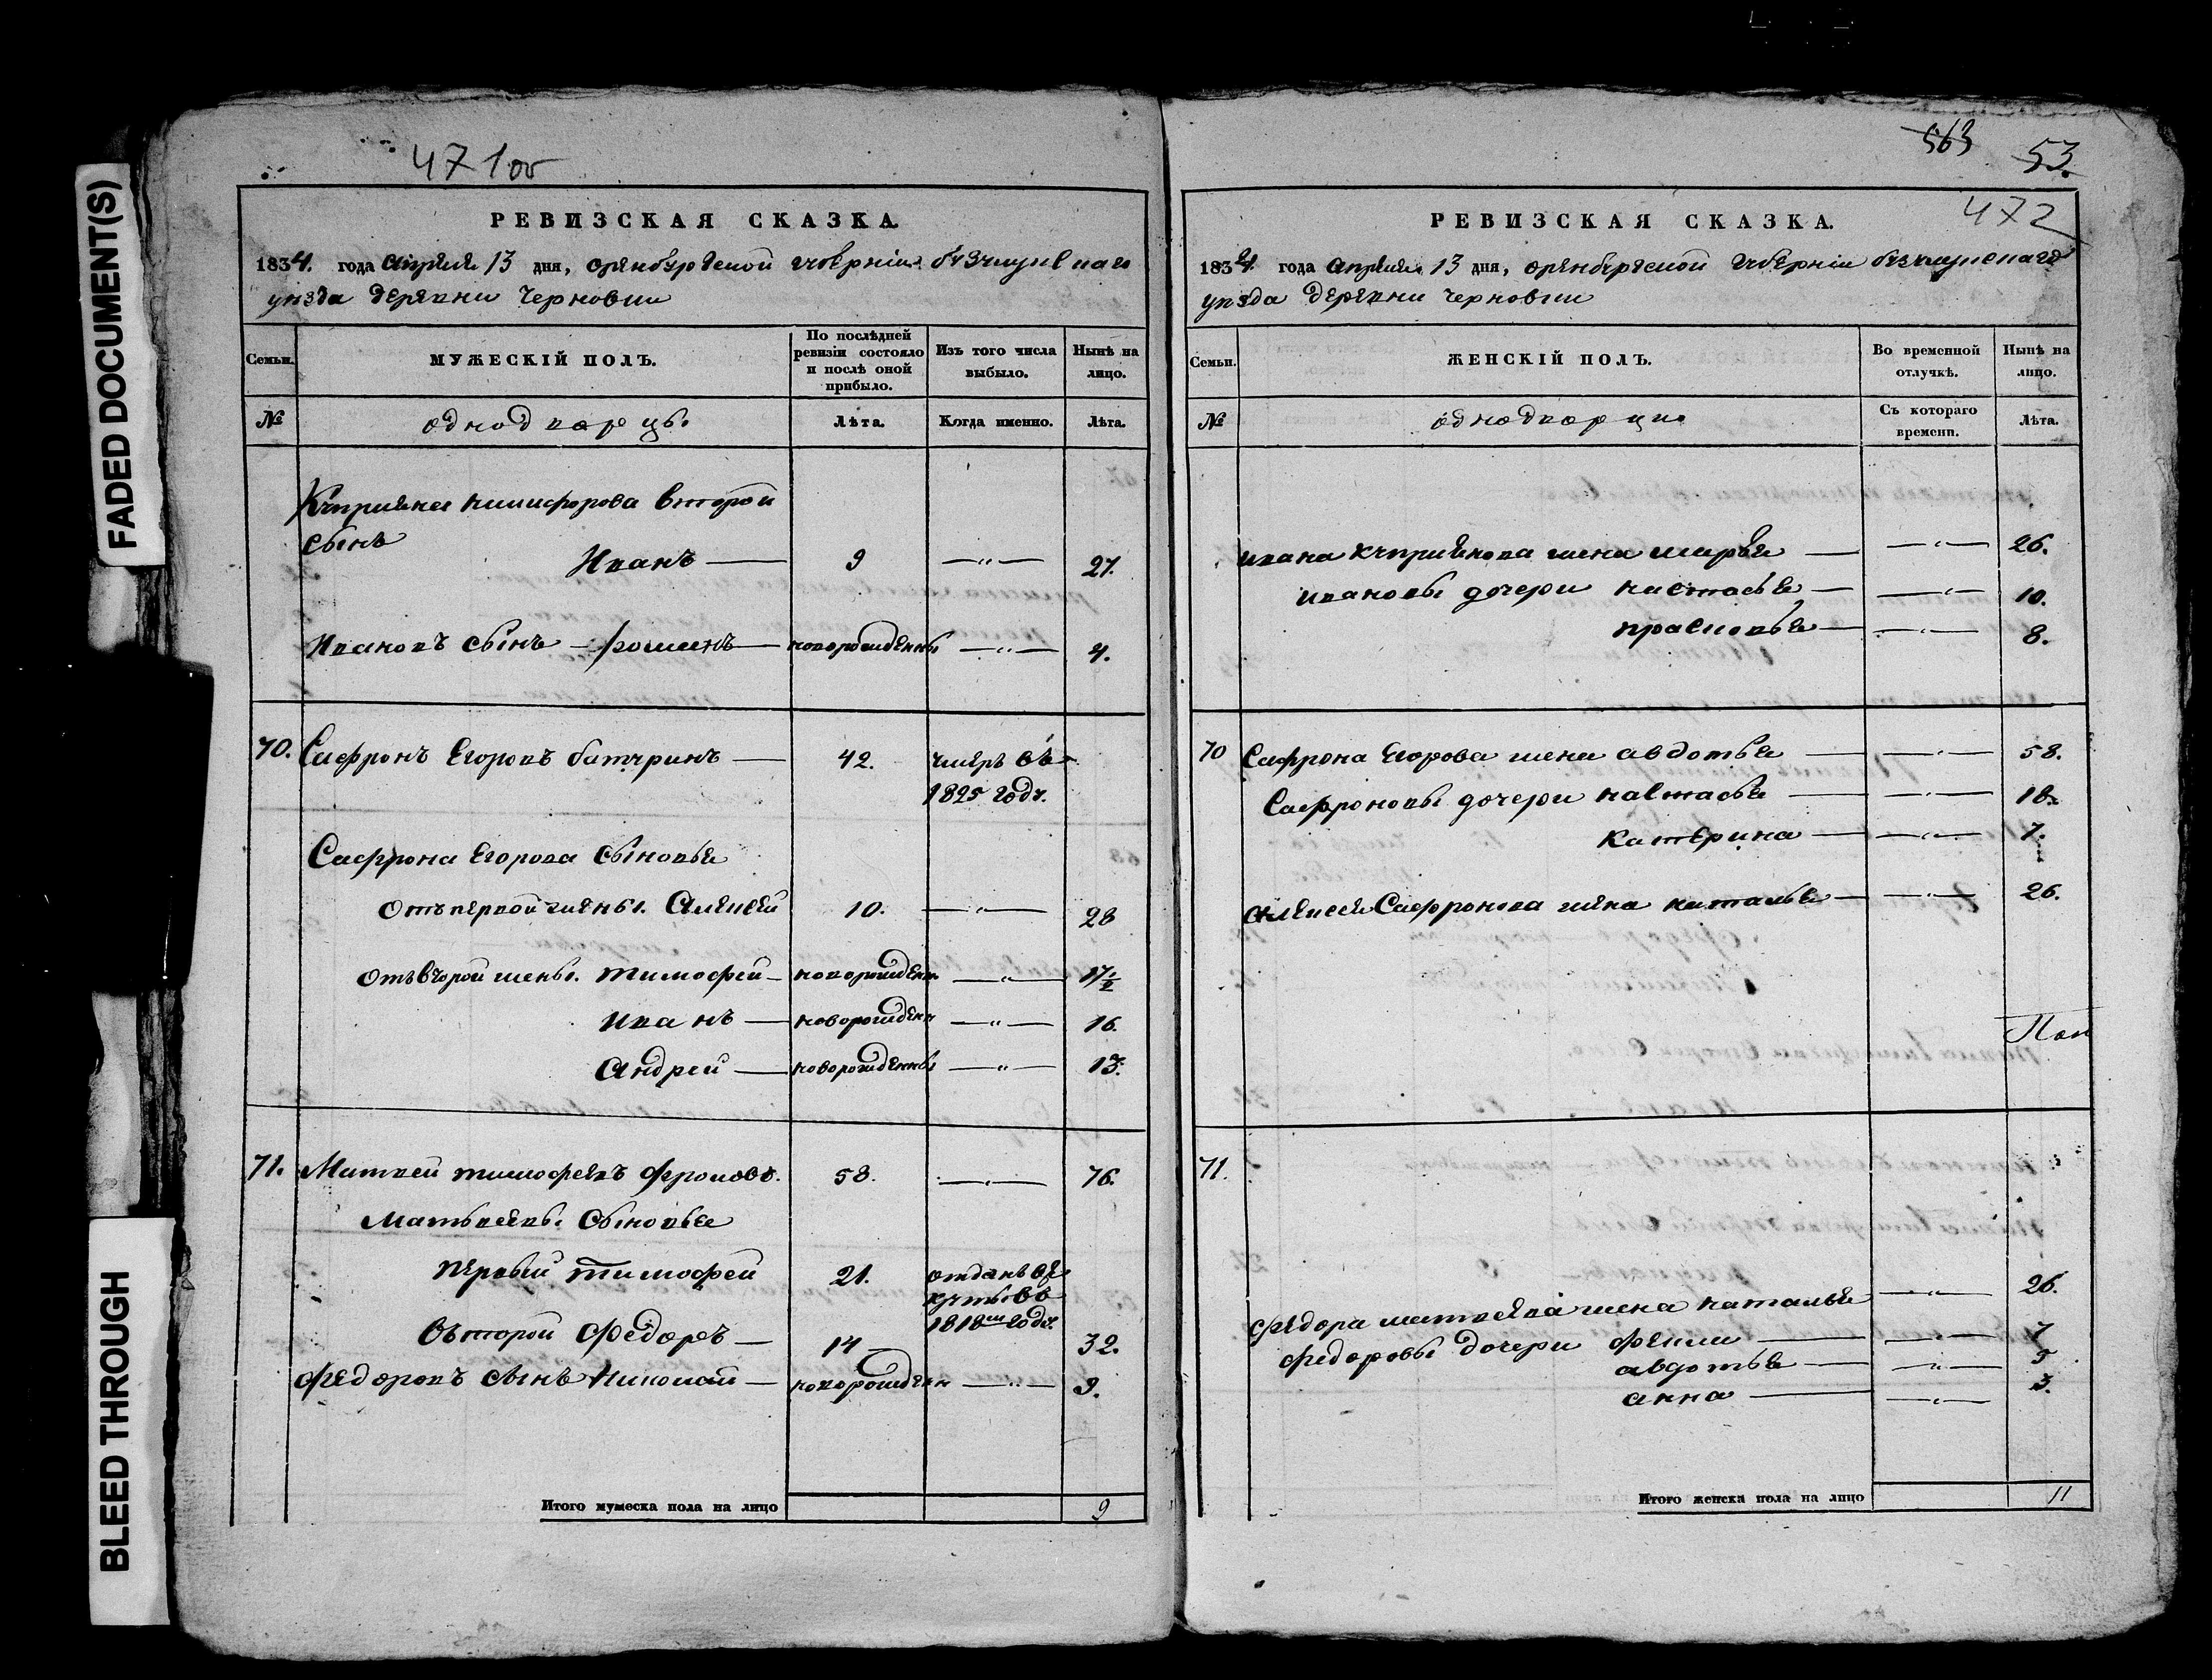 FADED DOCUMENT(S)
BLEED THROUGH
471об
РЕВИЗСКАЯ СКАЗКА.
1834. года апреля 13 дня, оренбургской губерніи бузулуцкаго
уѣзда деревни Черновки
Семьи. МУЖЕСКІЙ ПОЛЪ. По послѣдней ревизіи состояло и послѣ оной прибыло. Изъ того числа выбыло. Нынѣ на лицо.
№ однодворцы. Лѣта. Когда именно. Лѣта.
Куприяна никифорова второй
сынъ
Иванъ — 9 —"— 27.
Ивановъ сынъ — романъ — новорожденны —"— 4.
70. Сафронъ Егоровъ батуринъ — 42. умеръ въ
1825 году.
Сафрона Егорова сыновья
отъ первой жены. Алексей 10. —"— 28
отъ второй жены. тимофей — новорожден. —"— 17½
Иванъ — новорожден —"— 16.
Андрей — новорожденны —"— 13.
71. Матвей тимофеевъ фроловъ. 58. —"— 76.
Матвеевы сыновья
первый тимофей 21. отданъ въ ре
круты въ
1818м году.
второй федоръ — 14 — 32.
федоровъ сынъ Николай — новорожден —"— 9.
Итого мужеска пола на лицо 9
563 53.
472
РЕВИЗСКАЯ СКАЗКА.
1834. года апреля 13 дня, оренбургской губерніи бузулуцкаго
уѣзда деревни черновки
Семьи. ЖЕНСКІЙ ПОЛЪ. Во временной отлучкѣ. Нынѣ на лицо.
№ однодворци Съ котораго времени. Лѣта.
ивана куприянова жена марья — —"— 26.
ивановы дочери настасья — —"— 10.
прасковья — —"— 8.
70 Сафрона Егорова жена авдотья — —"— 58.
Сафроновы дочери настасья — —"— 18
катерина — —"— 7.
алексея Сафронова жена наталья — —"— 26.
71.
федора матвеева жена наталья —"— 26.
федоровы дочери фекла — —"— 7
авдотья — —"— 5
анна — —"— 3.
Итого женска пола на лицо 11